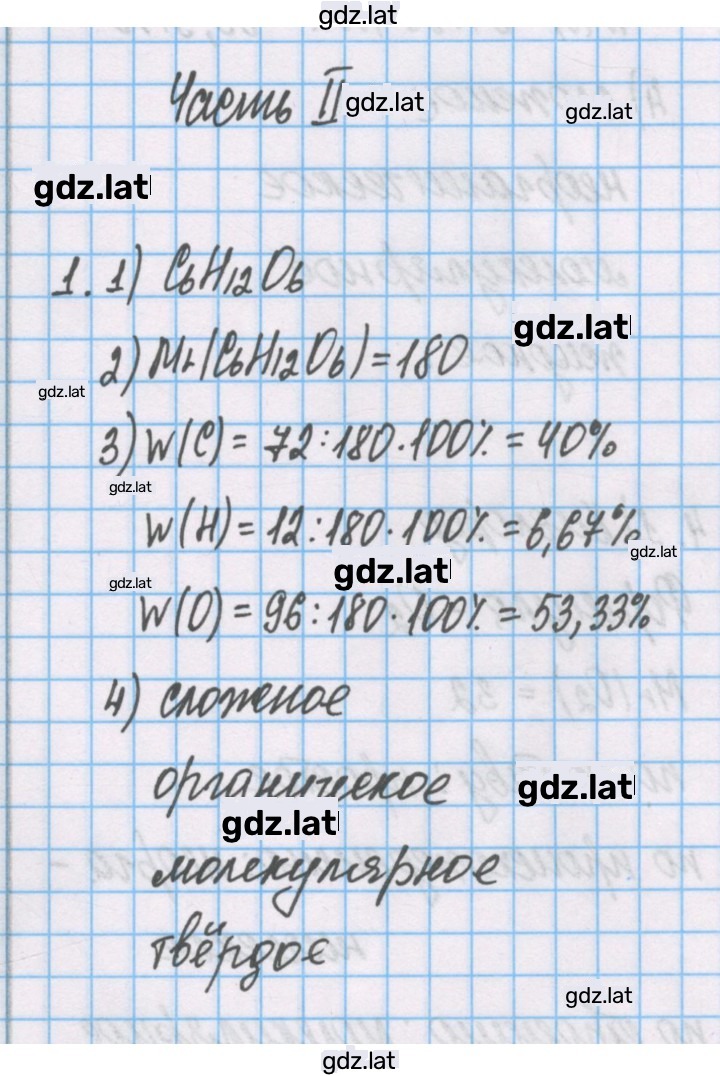 gdz.lat
Часть II gdz.lat
gdz.lat
gdz.lat
1. 1) C6H12O6
gdz.lat
2) Mr(C6H12O6)=180
gdz.lat
3) W(C) = 72:180·100% = 40%
gdz.lat
W(H) = 12:180·100% = 6,67%
gdz.lat
gdz.lat
gdz.lat
W(O) = 96:180·100% = 53,33%
4) сложное
органическое gdz.lat
gdz.lat
молекулярное
твёрдое
gdz.lat
gdz.lat